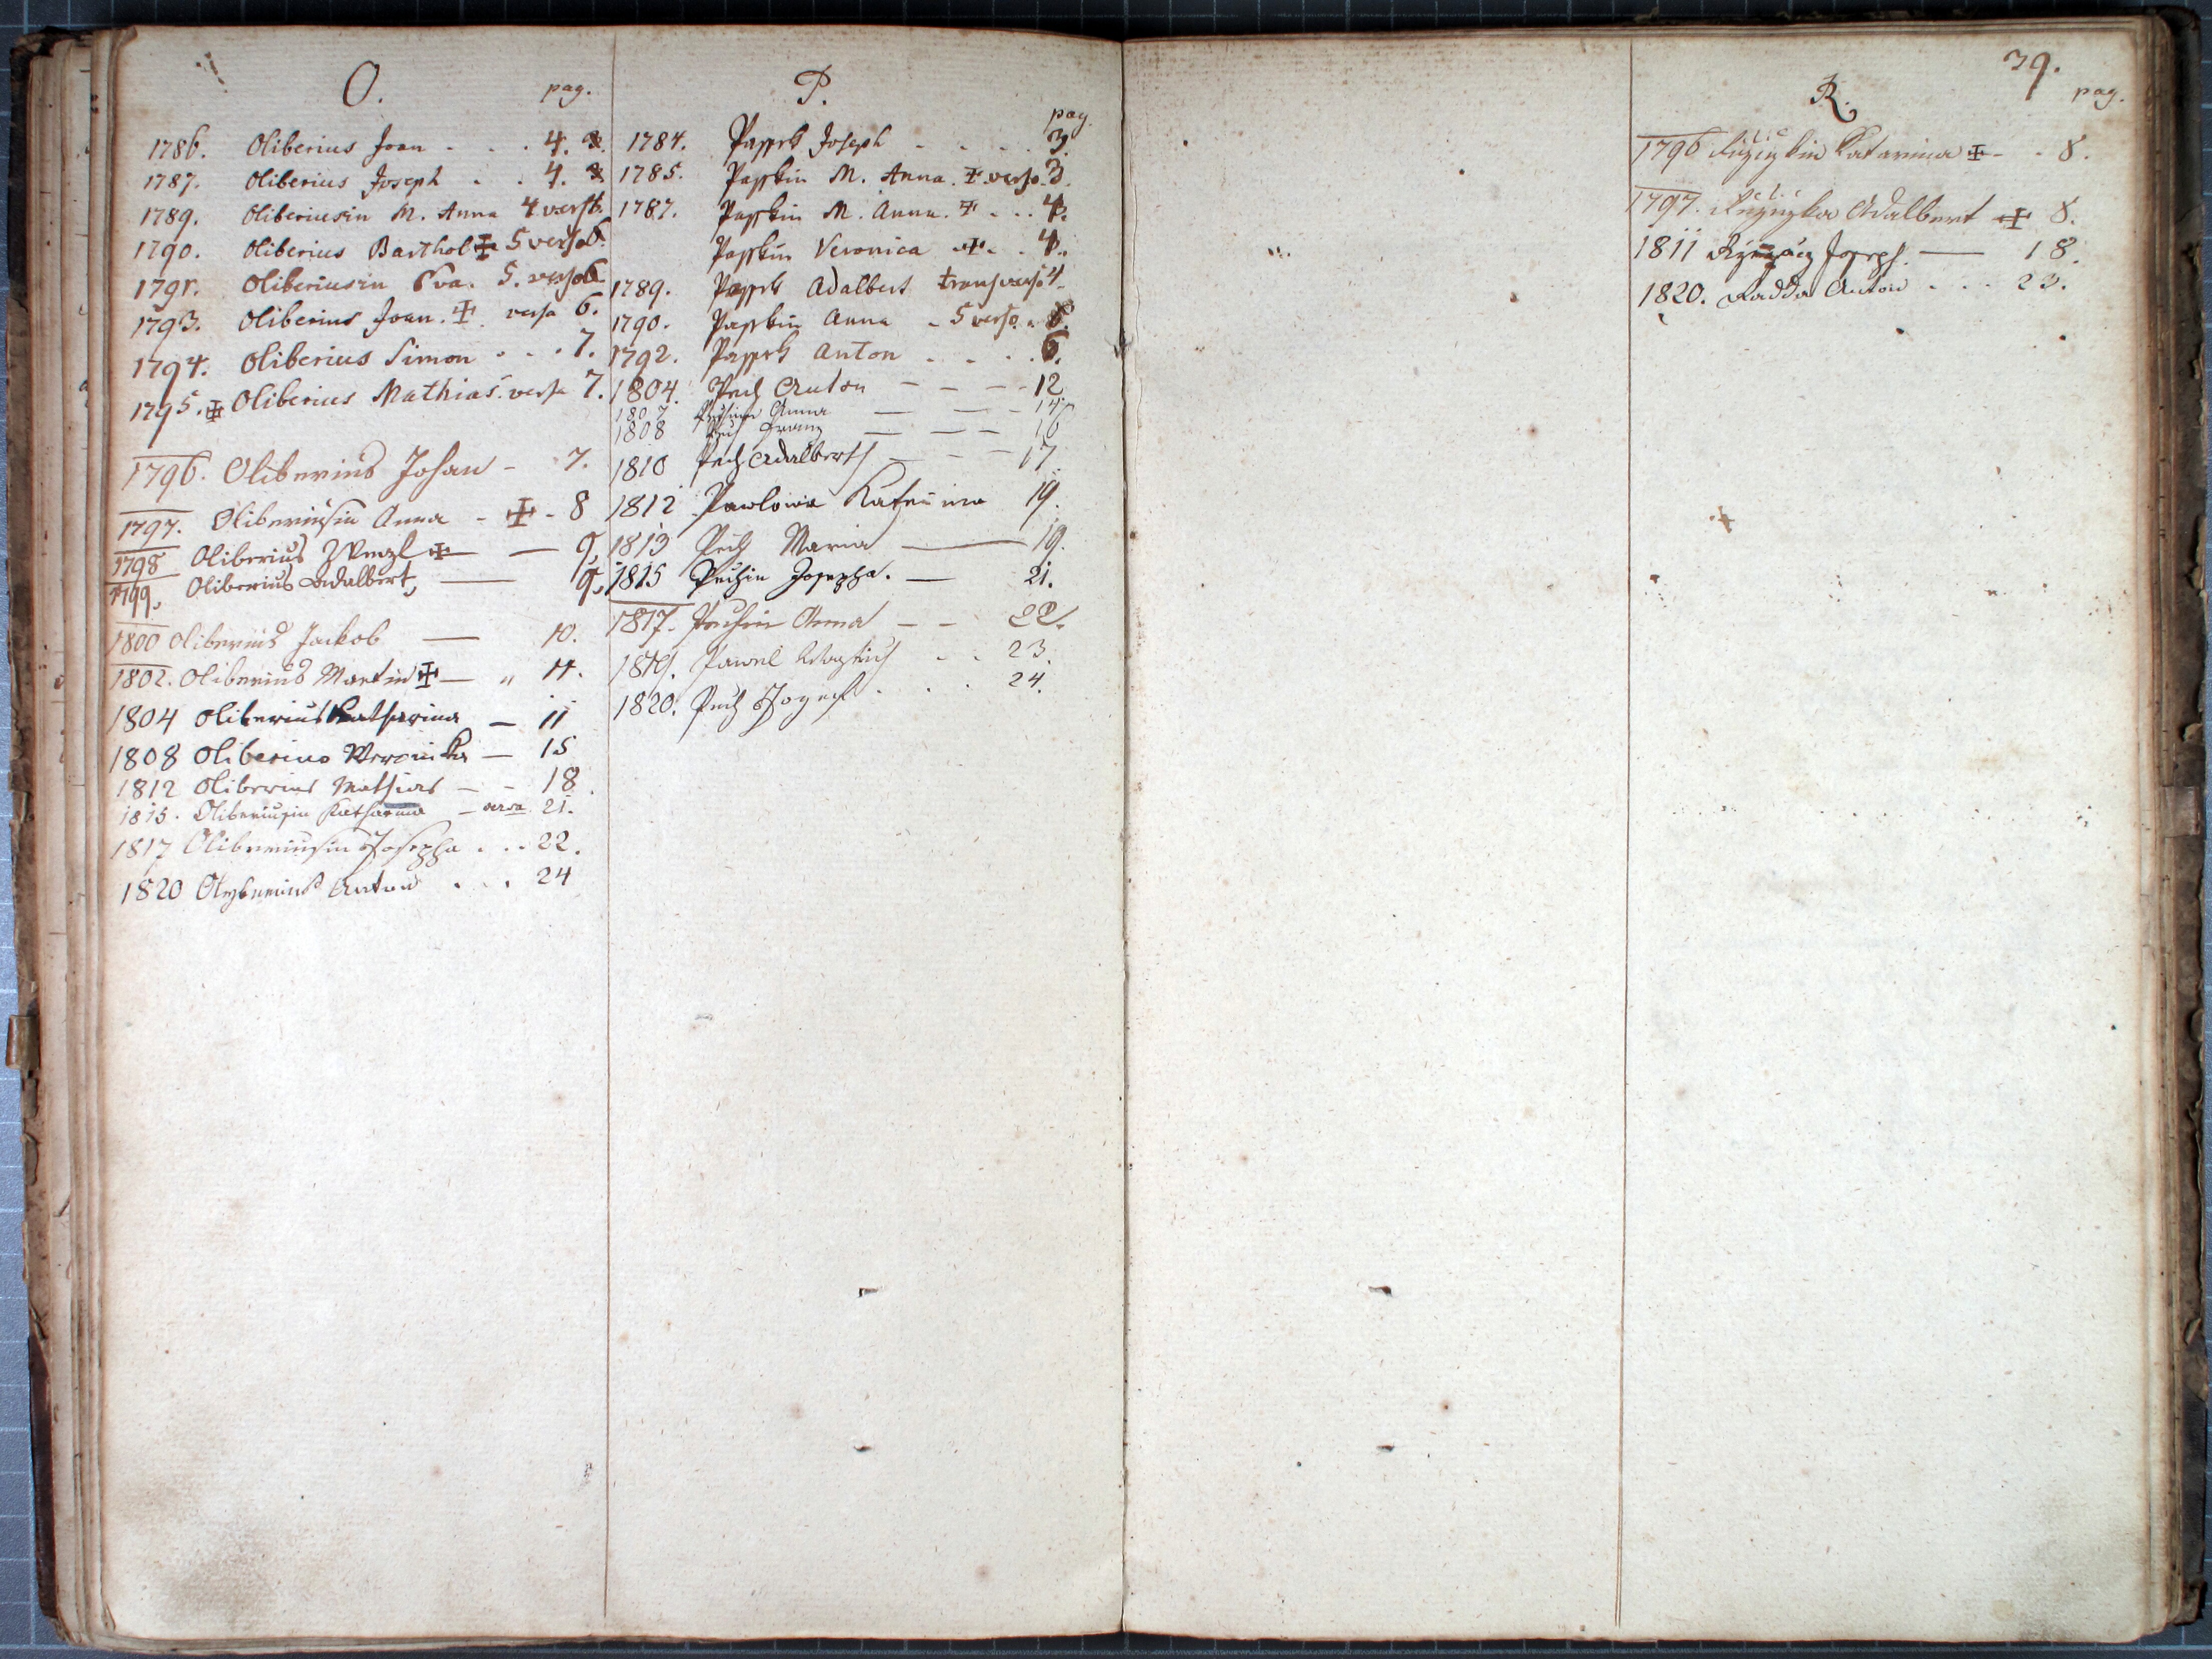 O. pag.
1786. Oliberius Joan - . . 4.
1787. Oliberius Joseph . . 4.
1789. Oliberiusin M. Anna 4 verso.
1790. Oliberius Barthol ✠ 5 verso
1791. Oliberiusin Eva. 5. verso
1793. Oliberius Joan. ✠ verso 6.
1794. Oliberius Simon . . . 7.
1795. ✠ Oliberius Mathias. verso 7.
1796. Oliberius Johan - 7.
1797. Oliberiusin Anna - ✠ - 8
1798 Oliberius Wenzl ✠ — 9.
1799. Oliberius Adalbert, — 9.
1800 Oliberius Jackob — 10.
1802. Oliberius Martin ✠ — „ 11.
1804 Oliberius Katharina — 11
1808 Oliberius Weronika — 15
1812 Oliberius Mathias — - 18.
1815. Oliberiusin Katharina — versa 21.
1817 Oliberiusin Josepha . . . 22.
1820 Olyberius Anton . . . 24
P.
pag.
1784. Joseph - . . . 3.
1785. M. Anna. ✠. verso. 3.
1787. M. Anna. ✠ . . . 4.
Veronica ✠ . . 4.
1789. Adalbert verso 4
1790. Anna - 5 verso
1792. Anton - . . . 6.
1804. Pech Anton - - - - 12
1807 Pechin Anna — — - 14.
1808 Pech Franz — — — 16
1810 Pech Adalbert — - — 17
1812 Pawlowa 19.
1813 Pech Maria —— 19.
1815 Pechin Josepha. — 21.
1817. Pechin Anna — - 22.
1819. Pawel . . 23.
1820. Pech Joseph . . . 24.
39.
R. pag.
1796 Katarina ✠ - - 8.
1797. Adalbert ✠ 8.
1811 Joseph. — 18.
1820. Radda Anton . . . 23.